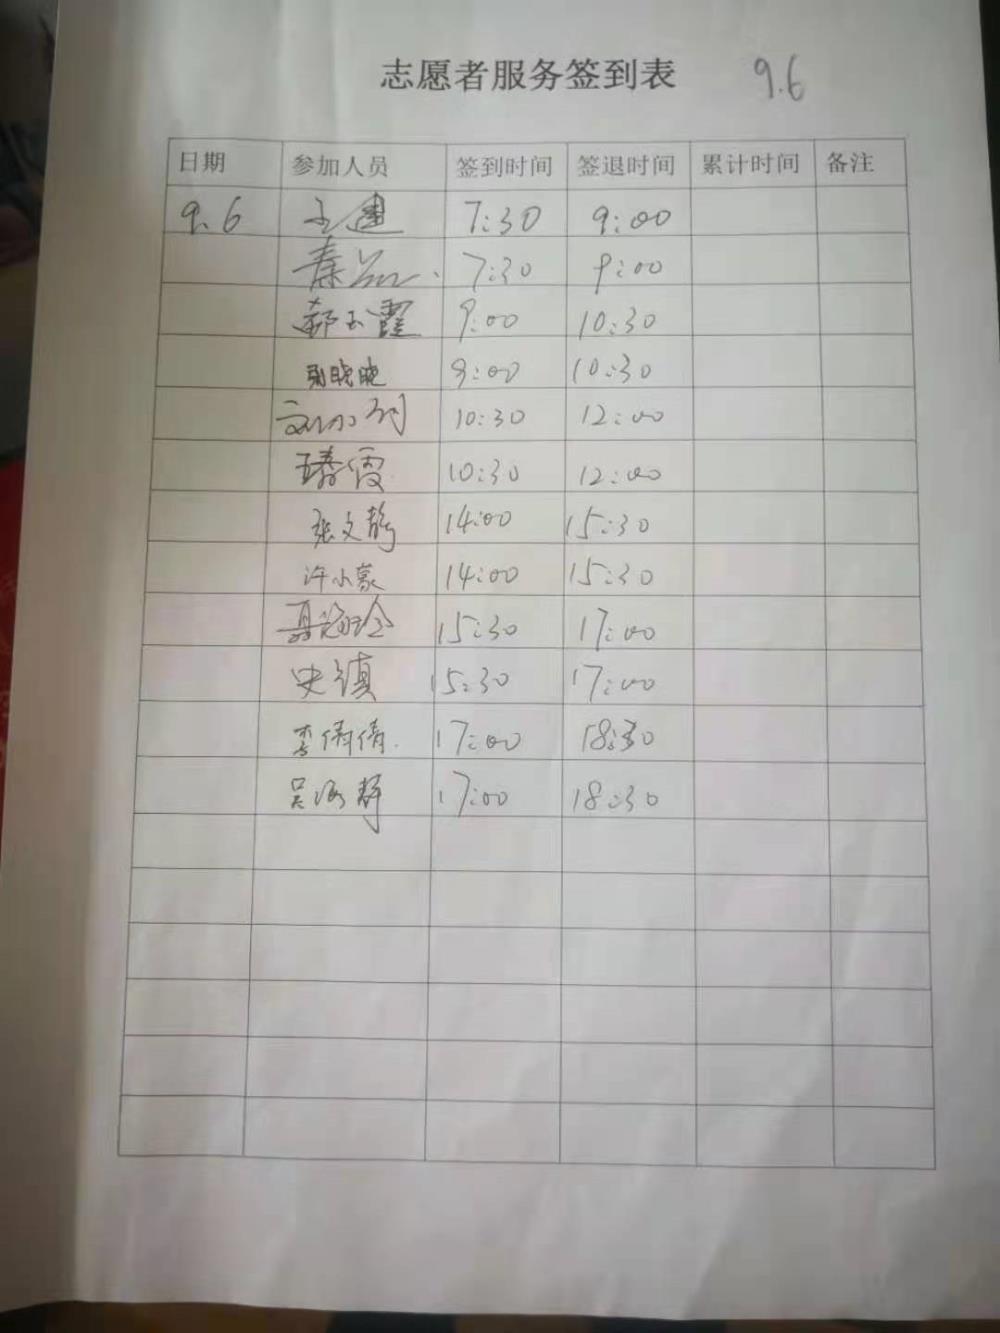 志愿者服务签到表 9.6
日期 参加人员 签到时间 签退时间 累计时间 备注
9.6 王建 7:30 9:00
秦 7:30 9:00
郝玉霞 9:00 10:30
张晓晓 9:00 10:30
刘 10:30 12:00
霞 10:30 12:00
张文静 14:00 15:30
许小蒙 14:00 15:30
聂海玲 15:30 17:00
史镇 15:30 17:00
李倩倩 17:00 18:30
吴海静 17:00 18:30